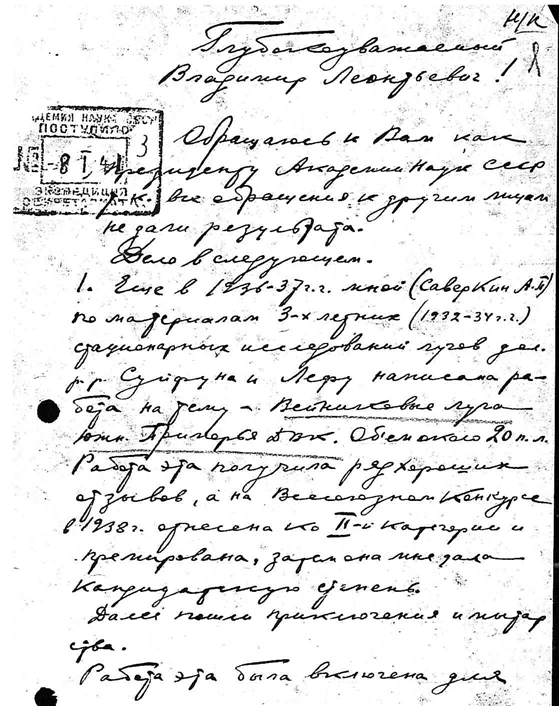 н/к
Глубокоуважаемый
Владимир Леонтьевич!
АДЕМИЯ НАУК СССР
ПОСТУПИЛО
-8 I 41
3
ЭКСПЕДИЦИЯ
СЕКРЕТАРИАТА
Обращаюсь к Вам как
президенту Академии Наук СССР
т.к. все обращения к другим лицам
не дали результата.
Дело в следующем.
1. Еще в 1936-37 г.г. мной (Саверкин А.П)
по материалам 3-х летних (1932-34 г.г.)
стационарных исследований лугов дол.
р.р. Суйфуна и Лефу написана ра-
бота на тему - Вейниковые луга
южн. Приморья ДВК. Объем около 20 п.л.
Работа эта получила ряд хороших
отзывов, а на Всесоюзном Конкурсе
в 1938 г. отнесена ко II-й категории и
премирована, затем она мне дала
кандидатскую степень.
Далее пошли приключения и мытар
ства.
Работа эта была включена для